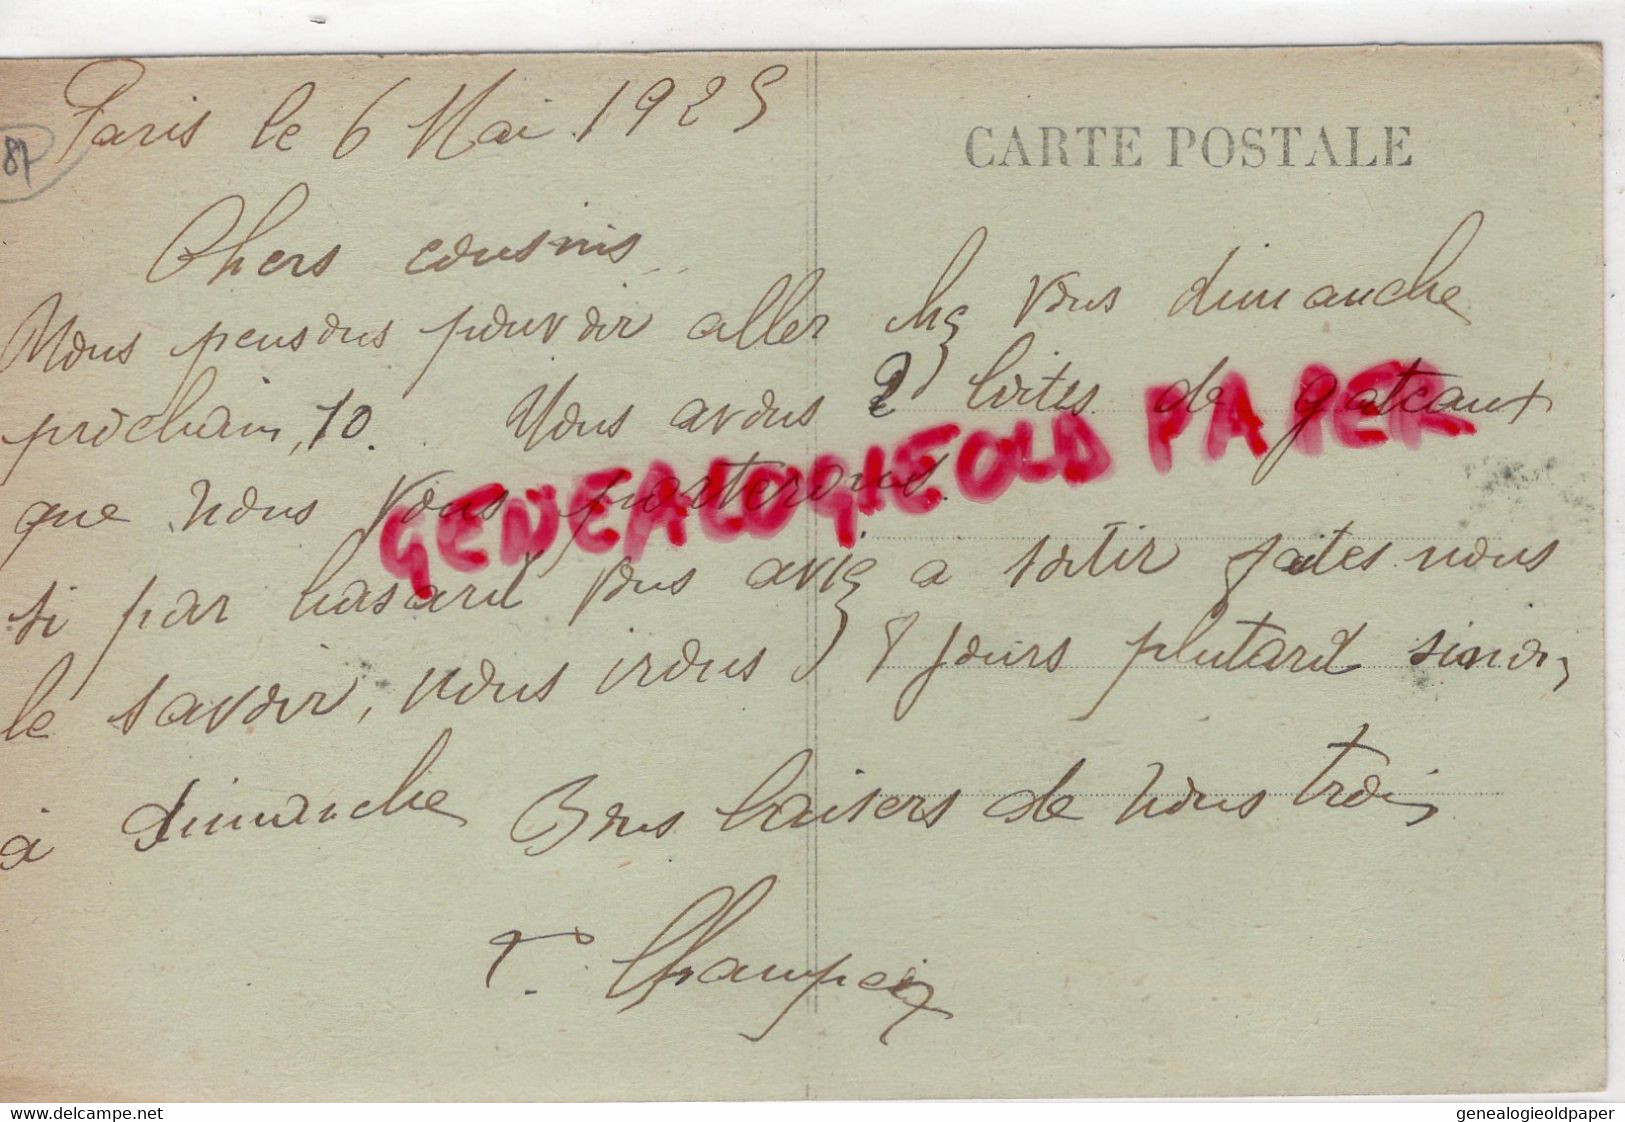 Paris le 6 Mai 1925
CARTE POSTALE
87
Chers cousins
Nous pensons pouvoir aller chez vous dimanche
prochain, 10. Nous avons 2 boites de gateaux
que nous vous porterons.
GENEALOGIEOLD PAPER
si par hasard vous aviez a sortir faites nous
le savoir, nous irons 8 jours plutard sinon,
à dimanche Bons baisers de nous trois
T. Champeix
delcampe.net
genealogieoldpaper